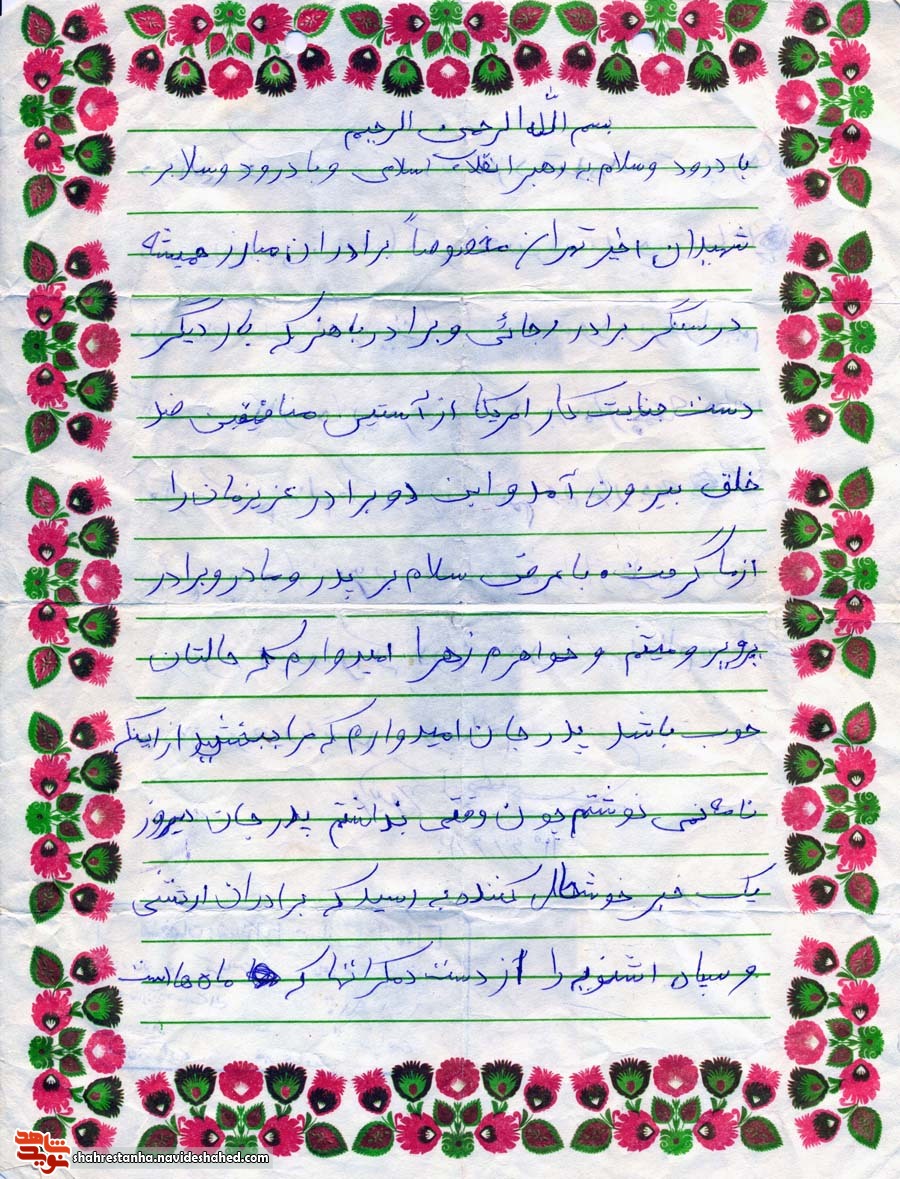 بسم الله الرحمن الرحیم
با درود و سلام به رهبر انقلاب اسلامی و با درود و سلا بر
شهیدان اخیر تهران مخصوصاً برادران مبارز همیشه
در سنگر برادر رجائی و برادر باهنر که بار دیگر
دست جنایت کار امریکا از آستین منافیقین ضد
خلق بیرون آمد و این دو برادر عزیزمان را
از ما گرفت با عرض سلام بر پدر و مادر و برادر
پرویز و میثم و خواهرم زهرا امیدوارم که حالتان
خوب باشد پدر جان امیدوارم که مرا ببخشید از اینکه
نامه نمی نوشتم چون وقتی نداشتم پدر جان دیروز
یک خبر خوشحال کننده به رسید که برادران ارتشی
و سپاه اشنویه را از دست دمکراتها که ماه هاست
شاهد
نوید
shahrestanha.navideshahed.com